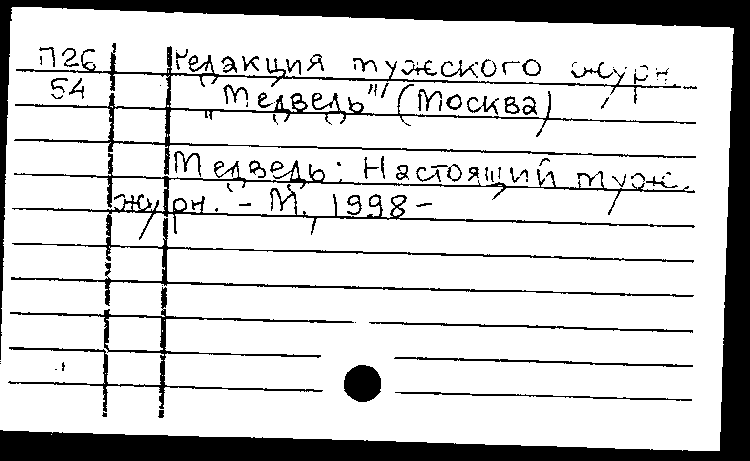 П26 Редакция мужского журн.
54 „Медведь" (Москва)
Медведь: Настоящий муж.
журн. - М., 1998-